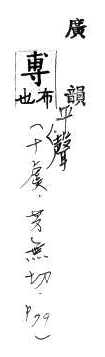 廣韻
尃
布
也
平聲
(十虞·芳無切·P79)